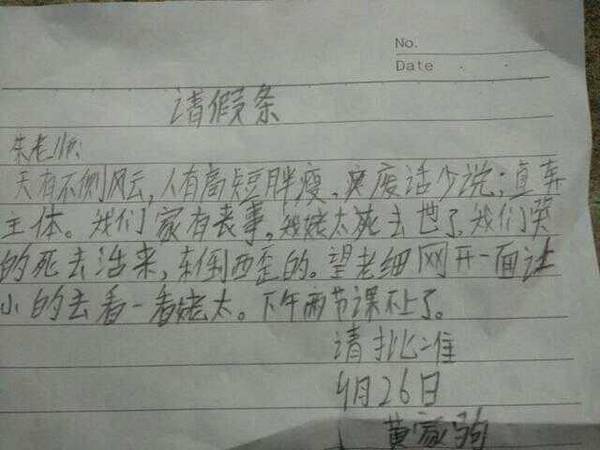 No.
Date
请假条
朱老师:
天有不侧风云,人有高短胖瘦。废话少说;直奔
主体。我们家有丧事,我姥太死去世了,我们哭
的死去活来,东倒西歪的。望老细网开一面让
小的去看一看姥太。下午两节课不上了。
请批准
4月26日
黄家驹